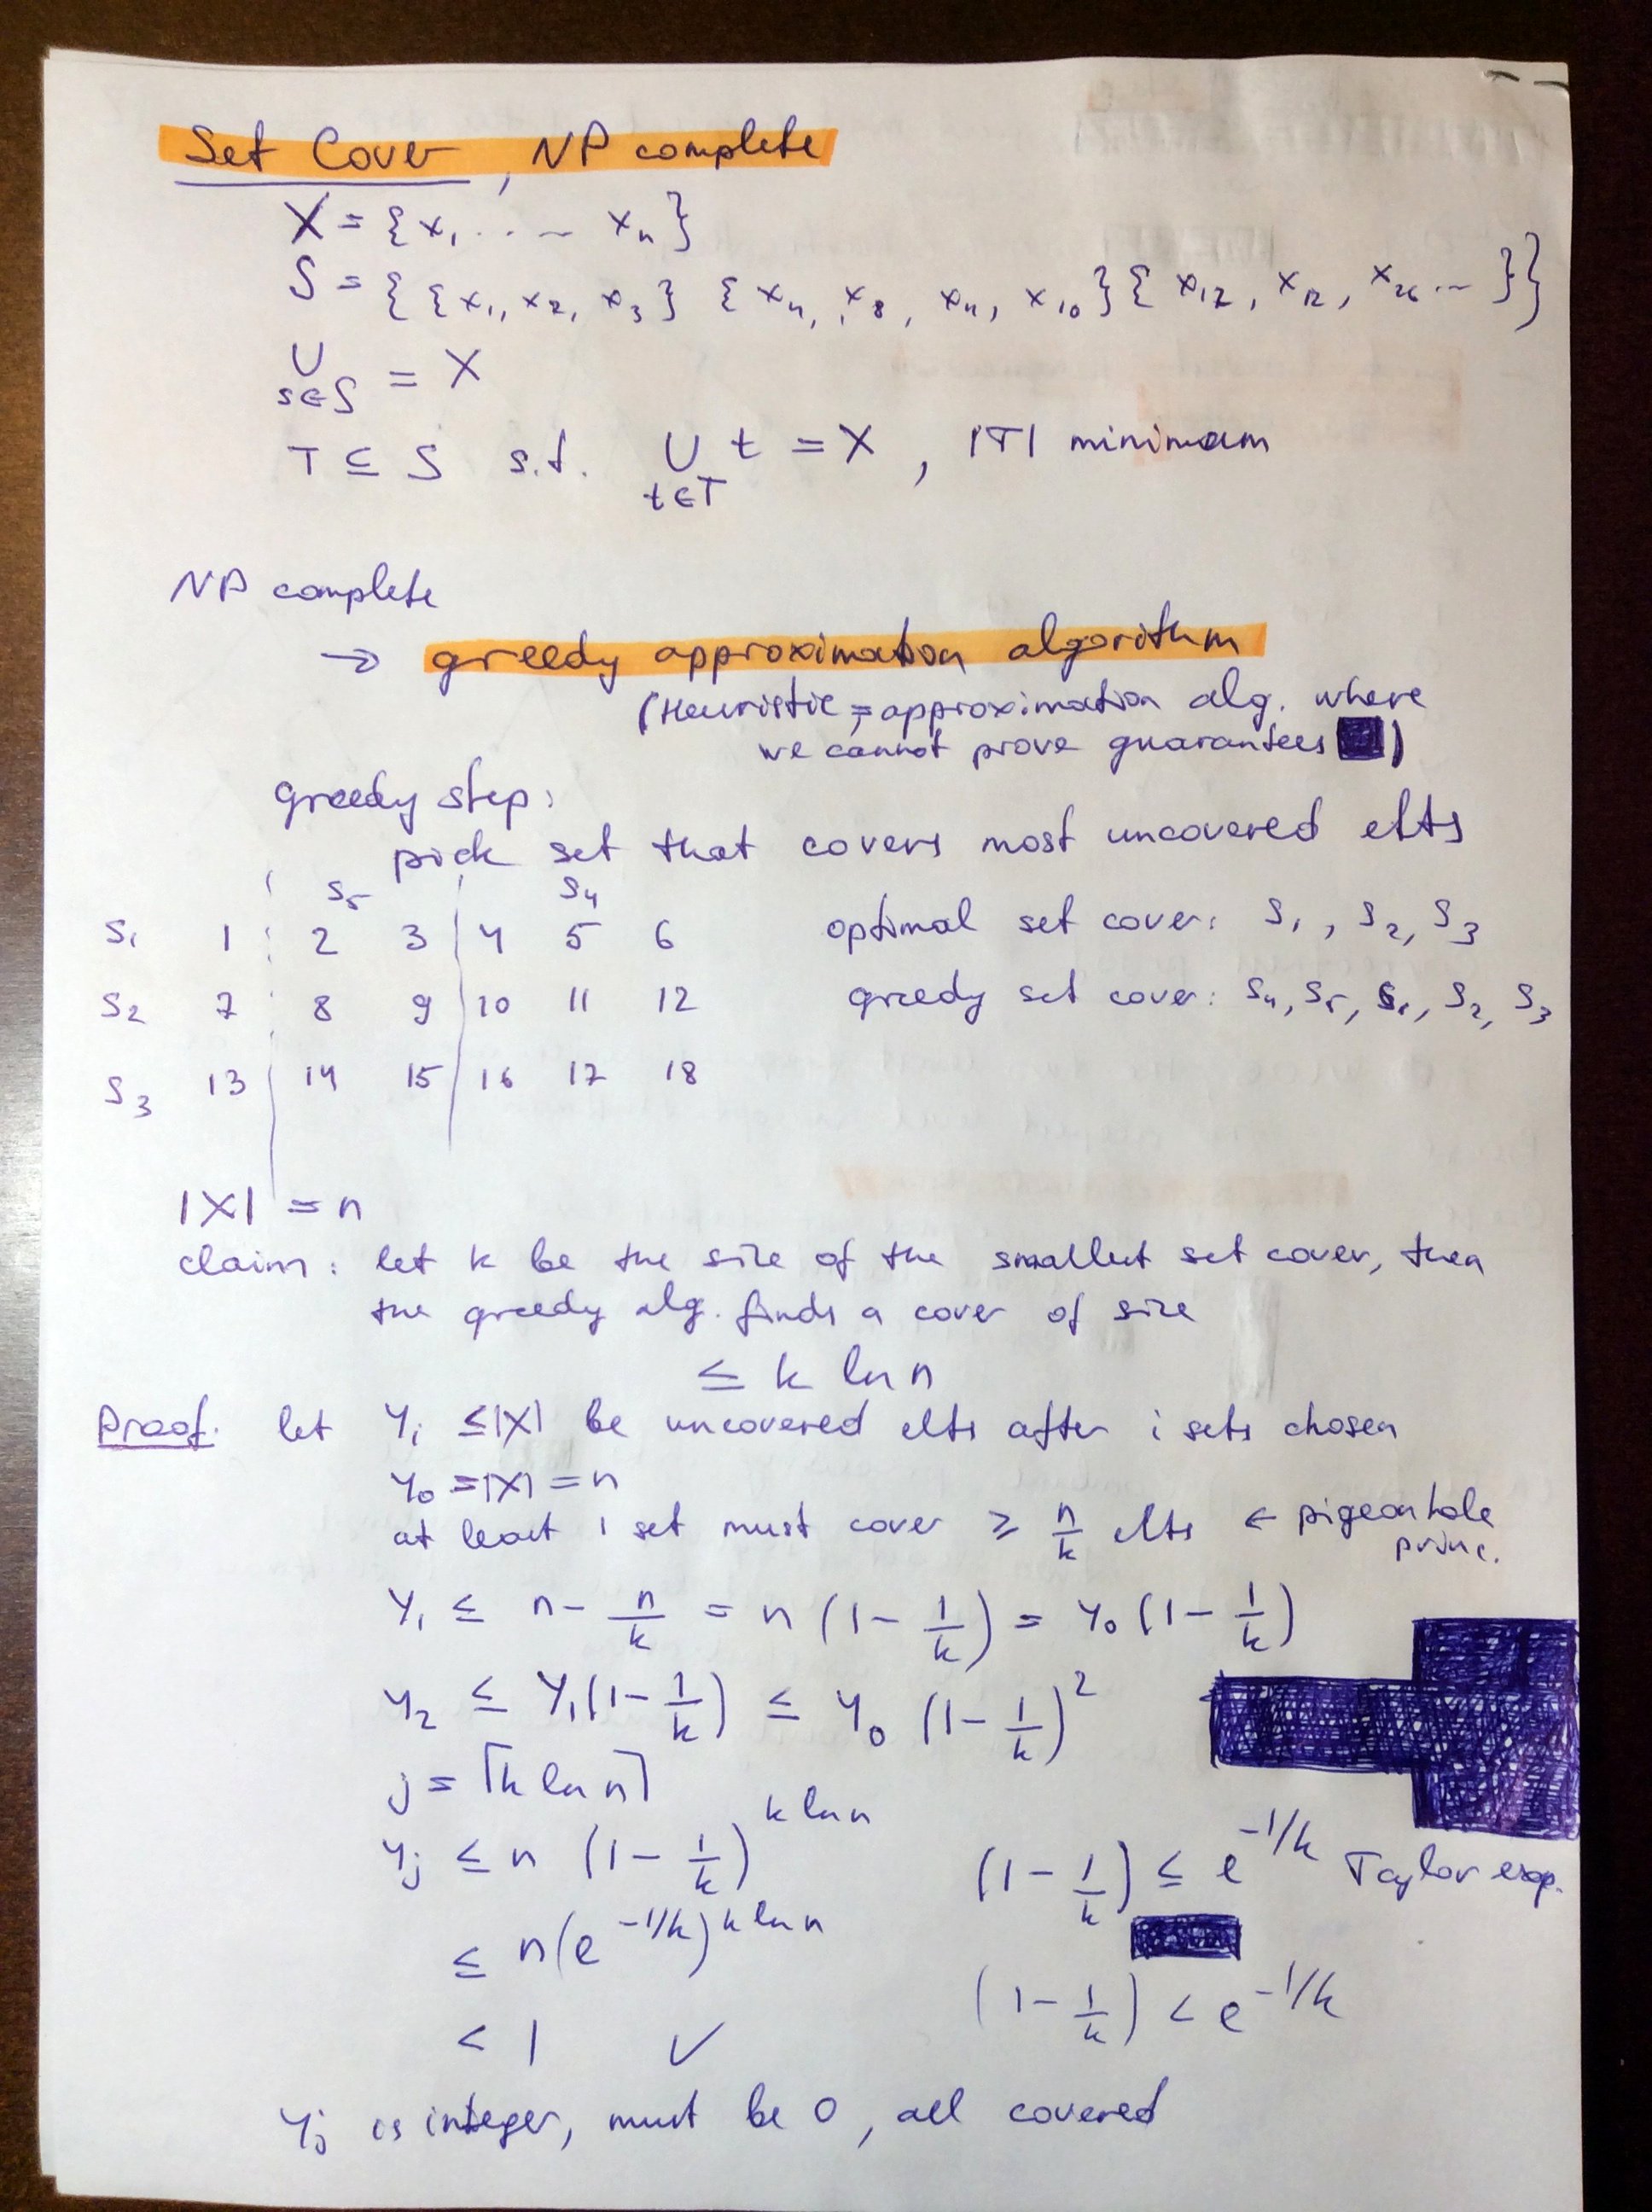 Set Cover, NP complete
X = {x₁ .... xₙ}
S = {{x₁, x₂, x₃} {x₄, x₈, x₁₁, x₁₀} {x₁₂, x₁₂, x₂₆ ...}}
∪ s∈S = X
T ⊆ S s.t. ∪ t∈T t = X, |T| minimum
NP complete
→ greedy approximation algorithm
(Heuristic = approximation alg. where
we cannot prove guarantees)
greedy step:
pick set that covers most uncovered elts
S₅ S₄
S₁ 1 2 3 4 5 6 optimal set cover: S₁, S₂, S₃
S₂ 7 8 9 10 11 12 greedy set cover: S₄, S₅, S₁, S₂, S₃
S₃ 13 14 15 16 17 18
|X| = n
claim: let k be the size of the smallest set cover, then
the greedy alg. finds a cover of size
≤ k ln n
Proof. let Yᵢ ≤ |X| be uncovered elts after i sets chosen
Y₀ = |X| = n
at least 1 set must cover ≥ n/k elts ← pigeonhole
princ.
Y₁ ≤ n - n/k = n (1 - 1/k) = Y₀ (1 - 1/k)
Y₂ ≤ Y₁ (1 - 1/k) ≤ Y₀ (1 - 1/k)²
j = ⌈k ln n⌉
Yⱼ ≤ n (1 - 1/k)^(k ln n) (1 - 1/k) ≤ e^(-1/k) Taylor exp.
≤ n (e^(-1/k))^(k ln n)
(1 - 1/k) < e^(-1/k)
< 1 ✓
Yⱼ is integer, must be 0, all covered